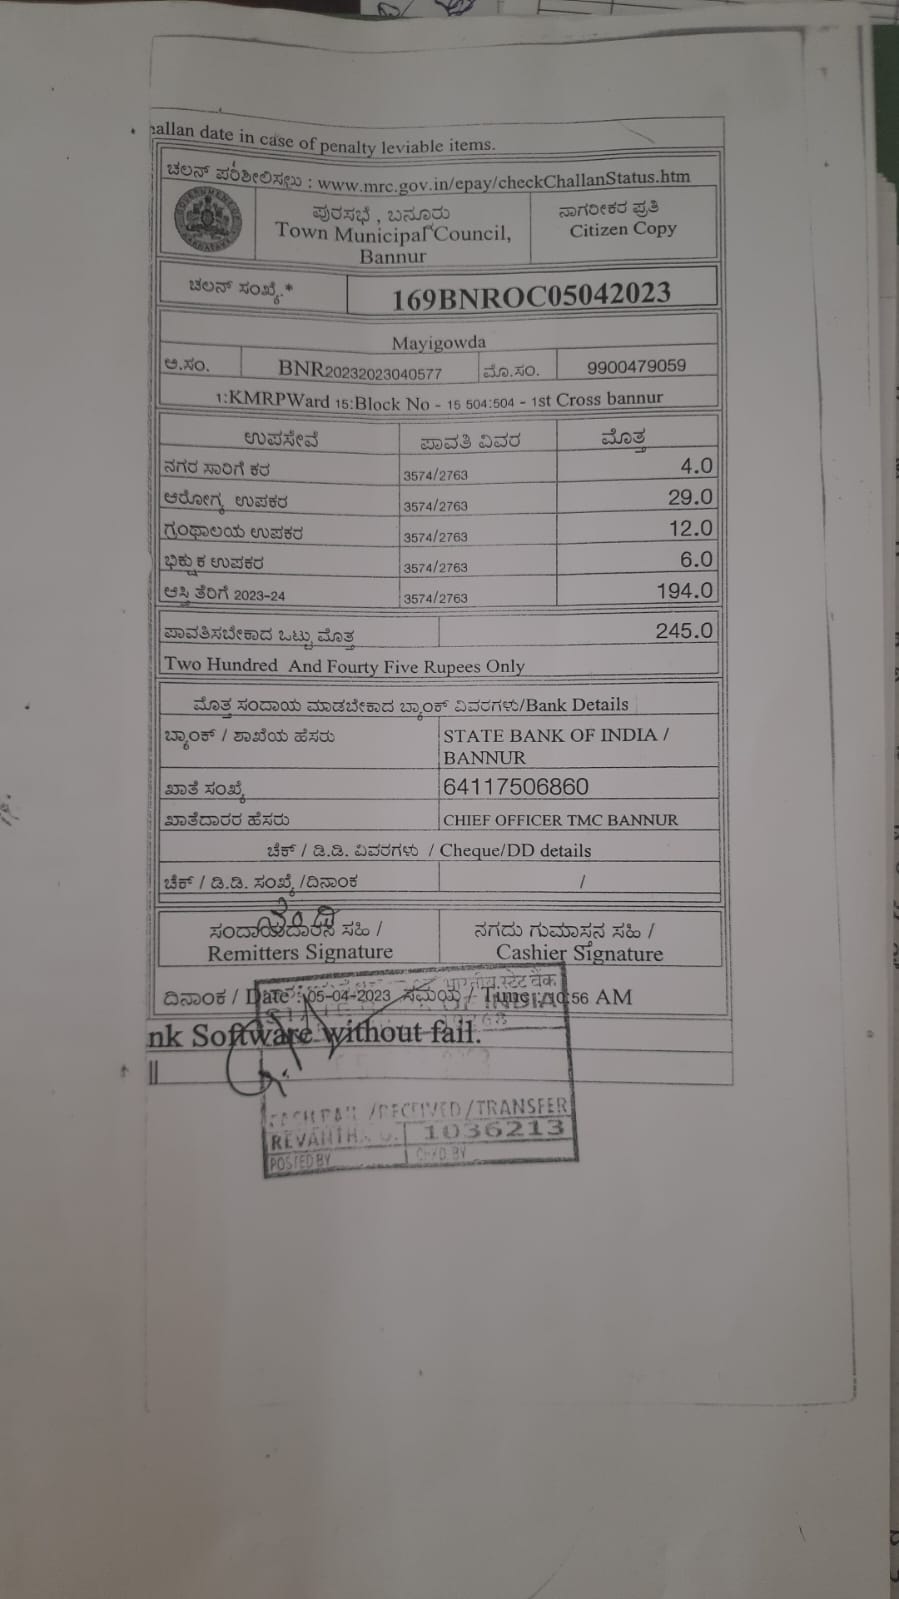 allan date in case of penalty leviable items.
ಚಲನ್ ಪರಿಶೀಲಿಸಲು : www.mrc.gov.in/epay/checkChallanStatus.htm
ಪುರಸಭೆ , ಬನೂರು
Town Municipal Council,
Bannur
ನಾಗರೀಕರ ಪ್ರತಿ
Citizen Copy
ಚಲನ್ ಸಂಖ್ಯೆ.* 169BNROC05042023
Mayigowda
ಅ.ಸಂ. BNR20232023040577 ಮೊ.ಸಂ. 9900479059
1:KMRPWard 15:Block No - 15 504:504 - 1st Cross bannur
ಉಪಸೇವೆ ಪಾವತಿ ವಿವರ ಮೊತ್ತ
ನಗರ ಸಾರಿಗೆ ಕರ 3574/2763 4.0
ಆರೋಗ್ಯ ಉಪಕರ 3574/2763 29.0
ಗ್ರಂಥಾಲಯ ಉಪಕರ 3574/2763 12.0
ಭಿಕ್ಷುಕ ಉಪಕರ 3574/2763 6.0
ಆಸ್ತಿ ತೆರಿಗೆ 2023-24 3574/2763 194.0
ಪಾವತಿಸಬೇಕಾದ ಒಟ್ಟು ಮೊತ್ತ 245.0
Two Hundred And Fourty Five Rupees Only
ಮೊತ್ತ ಸಂದಾಯ ಮಾಡಬೇಕಾದ ಬ್ಯಾಂಕ್ ವಿವರಗಳು/Bank Details
ಬ್ಯಾಂಕ್ / ಶಾಖೆಯ ಹೆಸರು STATE BANK OF INDIA /
BANNUR
ಖಾತೆ ಸಂಖ್ಯೆ 64117506860
ಖಾತೆದಾರರ ಹೆಸರು CHIEF OFFICER TMC BANNUR
ಚೆಕ್ / ಡಿ.ಡಿ. ವಿವರಗಳು / Cheque/DD details
ಚೆಕ್ / ಡಿ.ಡಿ. ಸಂಖ್ಯೆ /ದಿನಾಂಕ /
ಸಂದಾಯದಾರನ ಸಹಿ /
Remitters Signature
ನಗದು ಗುಮಾಸನ ಸಹಿ /
Cashier Signature
ದಿನಾಂಕ / Date : 05-04-2023 ಸಮಯ / Time : 10:56 AM
भारतीय स्टेट बैंक
nk Software without fail.
/RECEIVED/TRANSFER
1036213
POSTED BY